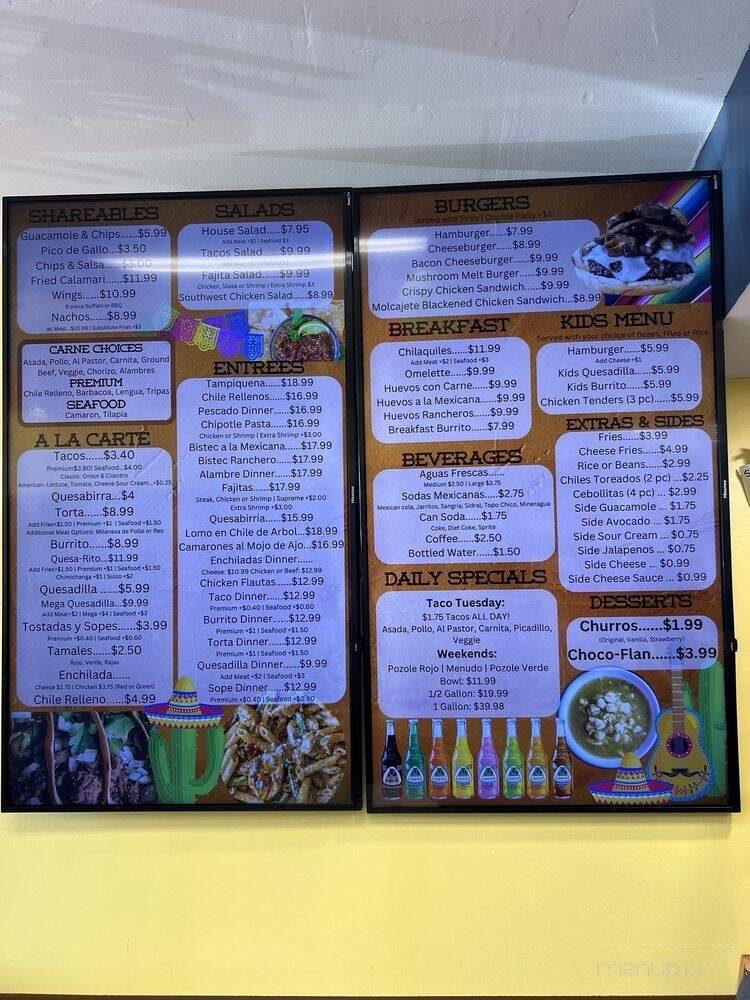 SHAREABLES
Guacamole & Chips.....$5.99
Pico de Gallo...$3.50
Chips & Salsa.....$3.00
Fried Calamari......$11.99
Wings......$10.99
8-piece Buffalo or BBQ
Nachos......$8.99
w/ Meat...$10.99 | Substitute Fries +$3
CARNE CHOICES
Asada, Pollo, Al Pastor, Carnita, Ground
Beef, Veggie, Chorizo, Alambres
PREMIUM
Chile Relleno, Barbacoa, Lengua, Tripas
SEAFOOD
Camaron, Tilapia
A LA CARTE
Tacos......$3.40
Premium$3.80| Seafood...$4.00
Classic: Onion & Cilantro
American: Lettuce, Tomato, Cheese Sour Cream...+$0.25
Quesabirra...$4
Torta......$8.99
Add Fries+$1.50 | Premium +$1 | Seafood +$1.50
Additional Meat Options: Milanesa de Pollo or Res
Burrito......$8.99
Quesa-Rito......$11.99
Add Fries+$1.50 | Premium +$1 | Seafood +$1.50
Chimichanga +$1 | Suizo +$2
Quesadilla ......$5.99
Mega Quesadilla...$9.99
Add Meat+$2 | Mega +$4 | Seafood +$3
Tostadas y Sopes......$3.99
Premium +$0.40 | Seafood +$0.60
Tamales......$2.50
Rojo, Verde, Rajas
Enchilada......
Cheese $2.75 | Chicken $3.75 (Red or Green)
Chile Relleno......$4.99
SALADS
House Salad.....$7.95
Add Meat +$2 | Seafood $3
Tacos Salad.....$9.99
Fajita Salad.....$9.99
Chicken, Steak or Shrimp | Extra Shrimp $3
Southwest Chicken Salad...$8.99
ENTREES
Tampiquena......$18.99
Chile Rellenos......$16.99
Pescado Dinner......$16.99
Chipotle Pasta......$16.99
Chicken or Shrimp | Extra Shrimp +$3.00
Bistec a la Mexicana......$17.99
Bistec Ranchero......$17.99
Alambre Dinner......$17.99
Fajitas......$17.99
Steak, Chicken or Shrimp | Supreme +$2.00
Extra Shrimp +$3.00
Quesabirria......$15.99
Lomo en Chile de Arbol...$18.99
Camarones al Mojo de Ajo...$16.99
Enchiladas Dinner......
Cheese: $10.99 Chicken or Beef: $12.99
Chicken Flautas......$12.99
Taco Dinner......$12.99
Premium +$0.40 | Seafood +$0.60
Burrito Dinner......$12.99
Premium +$1 | Seafood +$1.50
Torta Dinner......$12.99
Premium +$1 | Seafood +$1.50
Quesadilla Dinner......$9.99
Add Meat +$2 | Seafood +$3
Sope Dinner......$12.99
Premium +$0.40 | Seafood +$0.60
BURGERS
Served with Fries | Double Patty +$4
Hamburger......$7.99
Cheeseburger......$8.99
Bacon Cheeseburger......$9.99
Mushroom Melt Burger......$9.99
Crispy Chicken Sandwich......$9.99
Molcajete Blackened Chicken Sandwich...$8.99
BREAKFAST
Chilaquiles......$11.99
Add Meat +$2 | Seafood +$3
Omelette......$9.99
Huevos con Carne......$9.99
Huevos a la Mexicana......$9.99
Huevos Rancheros......$9.99
Breakfast Burrito......$7.99
BEVERAGES
Aguas Frescas......
Medium $2.50 | Large $3.75
Sodas Mexicanas.....$2.75
Mexican cola, Jarritos, Sangria, Sidral, Topo Chico, Mineragua
Can Soda......$1.75
Coke, Diet Coke, Sprite
Coffee......$2.50
Bottled Water......$1.50
DAILY SPECIALS
Taco Tuesday:
$1.75 Tacos ALL DAY!
Asada, Pollo, Al Pastor, Carnita, Picadillo,
Veggie
Weekends:
Pozole Rojo | Menudo | Pozole Verde
Bowl: $11.99
1/2 Gallon: $19.99
1 Gallon: $39.98
KIDS MENU
Served with your choice of Beans, Fries or Rice
Hamburger......$5.99
Add Cheese +$1
Kids Quesadilla......$5.99
Kids Burrito......$5.99
Chicken Tenders (3 pc)......$5.99
EXTRAS & SIDES
Fries......$3.99
Cheese Fries......$4.99
Rice or Beans......$2.99
Chiles Toreados (2 pc) ...$2.25
Cebollitas (4 pc) ... $2.99
Side Guacamole ... $1.75
Side Avocado ... $1.75
Side Sour Cream ... $0.75
Side Jalapenos ... $0.75
Side Cheese ... $0.99
Side Cheese Sauce ... $0.99
DESSERTS
Churros......$1.99
(Original, Vanilla, Strawberry)
Choco-Flan......$3.99
Hisense
Hisense
menupix